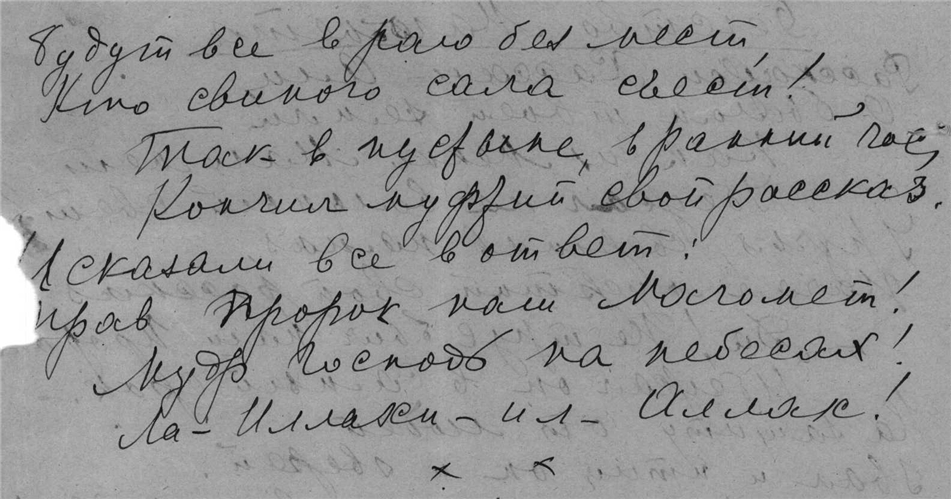 Будут все в раю без мест,
Кто свиного сала съест!
Так в пустыне, в ранний час,
Кончил муфтий свой рассказ.
И сказали все в ответ:
Прав Пророк наш Магомет!
Мудр Господь на небесах!
Ла-Иллахи-ил-Аллах!
х х